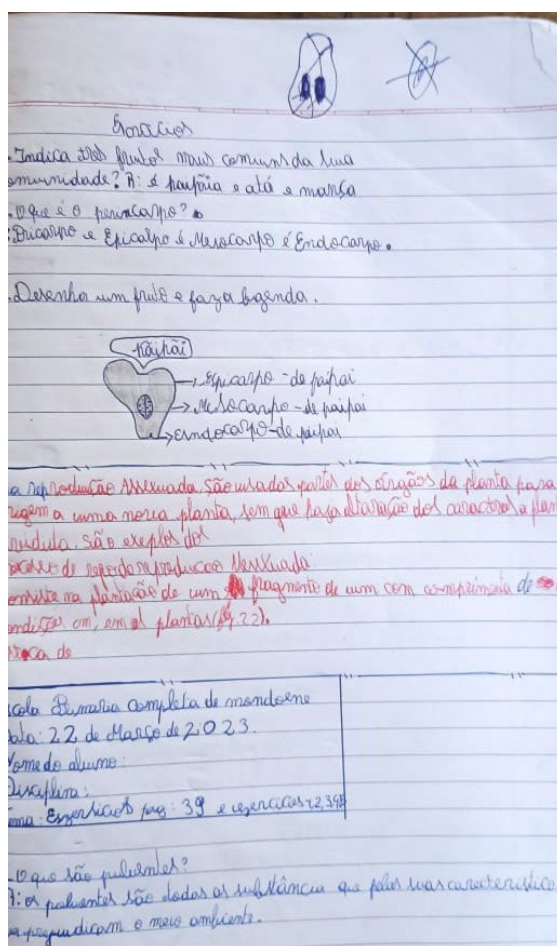 Exercicios
.Indica três frutos mais comuns da sua
omunidade? R: é paipaia e atá e mança
.O que é o perincarpo?
:Pricarpo e Epicalpo é Mesocarpo é Endocarpo.
.Desenha um fruto e faza legenda.
Pãipãi
Epicarpo-de paipai
Mesocarpo-de paipai
Endocarpo-de paipai
a reprodução Assexuada, São usados partes dos órgãos da planta para
rigem a uma nova planta, sem que haja altaração dos caractros a plan
são exeplos dos
de reproducao Assexuada
onsiste na plantação de um fragmento de um com comprimento de
ondições cm, em al plantas (fig.22).
de
scola Primaria completa de mondoene
Data: 22 de Março de 2023.
Nome do aluno:
Disciplina:
ema: Exersicios pag: 39 e exercicios
.O que são puluentes?
R: os poluentes são todas as substância que pelas suas caracteristico
prejundicam o meio ambiente.